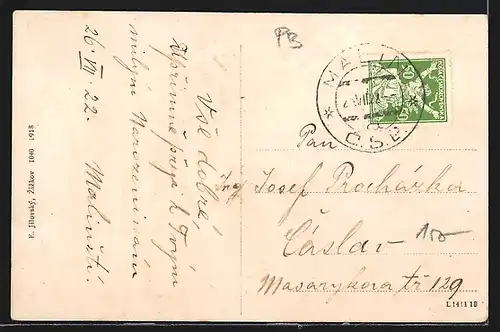 PB
Vše dobré,
Upřímně přeje k Tvým
milým Narozeninám
26 VII 22. Malinští.
F. Jilovský, Žižkov 1040 1918
MALÍN
Č.S.P.
Pan
Ing Josef Procházka
Čáslav
150
Masarykova tř 129
L 1411 18